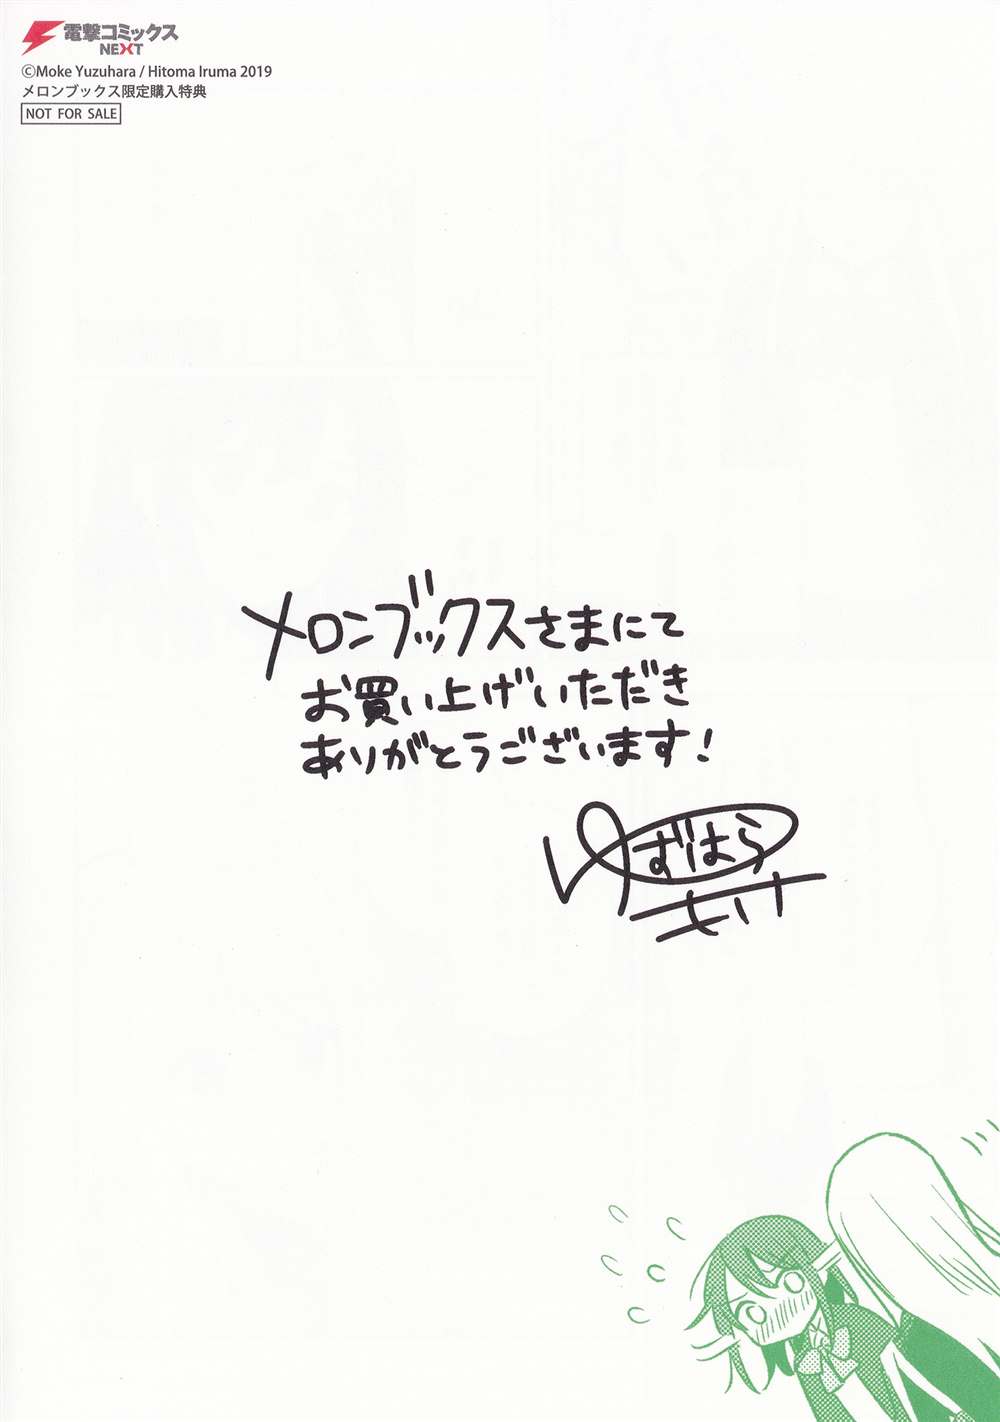 電撃コミックス
NEXT
©Moke Yuzuhara / Hitoma Iruma 2019
メロンブックス限定購入特典
NOT FOR SALE
メロンブックスさまにて
お買い上げいただき
ありがとうございます!
ゆずはら
もけ